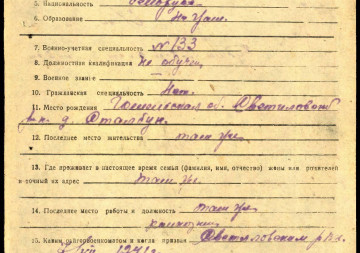 5. Национальность белорус
6. Образование
7. Военно-учетная специальность №133
8. Должностная квалификация не обучен
9. Военное звание
10. Гражданская специальность Нет.
11. Место рождения Гомельская об. Светиловский
р-н. д. Столбун.
12. Последнее место жительства там же
13. Где проживает в настоящее время семья (фамилия, имя, отчество) жены или родителей
и точный их адрес там же.
14. Последнее место работы и должность там же
колхозник
15. Каким райгорвоенкоматом и когда призван Светиловским РВК.
1941 г.